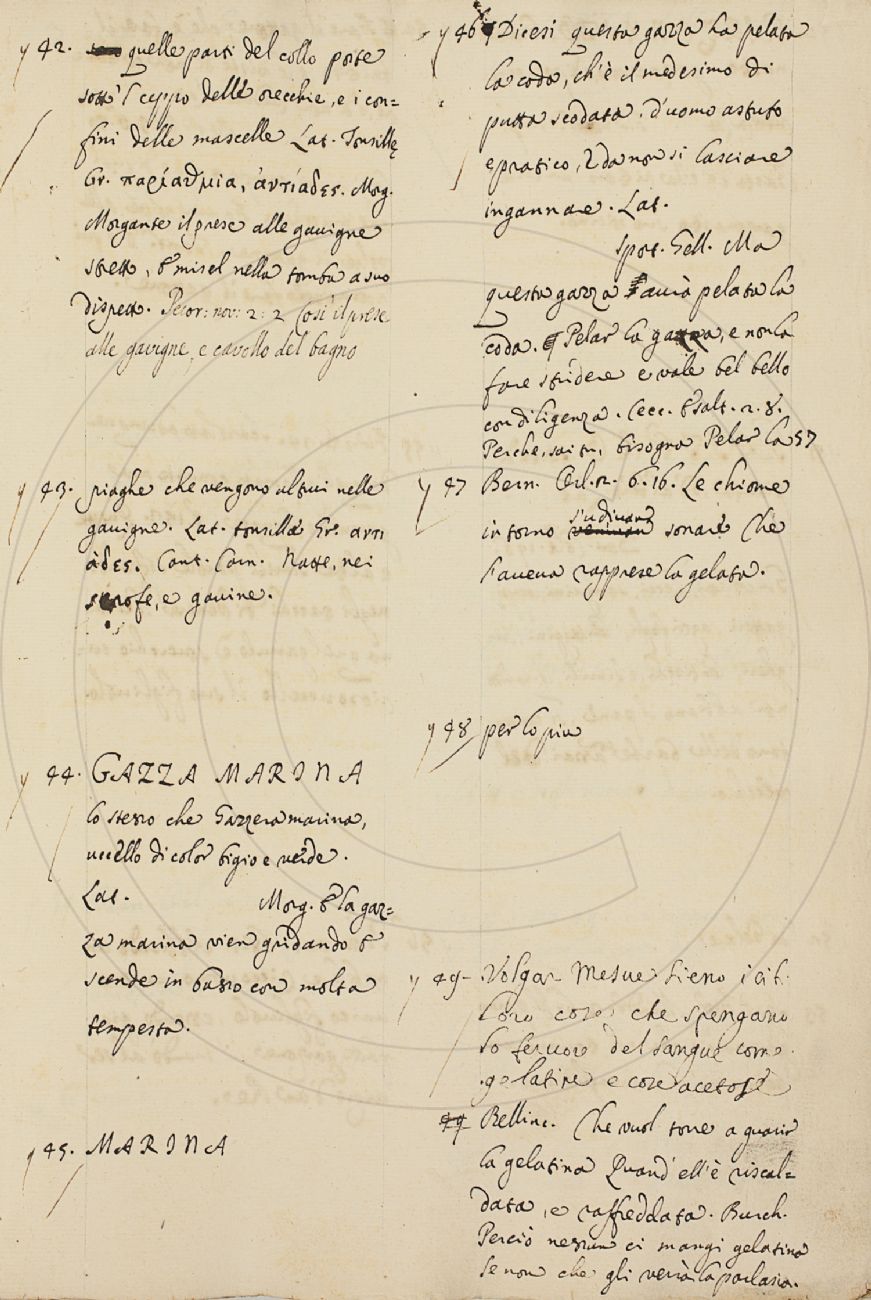 y 42. quelle parti del collo poste
sott' l ceppo delle orecchie, e i con=
fini delle mascelle Lat. Tonsillę
Gr. παρίαθμια, ἀντίαδες. Morg.
Morgante il prese alle gauigne
strette, & misel nella tomba a suo
dispetto. Pecor: nov: 2: 2 Cosi il prese
alle gavigne, e cavollo del bagno
y 43. piaghe che vengono altrui nelle
gauigne. Lat. tonsillae Gr. αντι
άδες. Cant. Carn. Natte, nei
scrofe, e gauine.
y 44. GAZZA MARINA
lo stesso che Gazzera marina,
uccello di color bigio e verde.
Lat. Morg. & la gaz=
za marina vien gridando &
scende in basso con molta
tempesta.
y 45. MARINA
y 46 Dicesi questa gazza ha pelata
la coda, ch'è il medesimo di
putta scodata. D'uomo astuto
e pratico, & da non si lasciare
ingannare. Lat.
Sport. Gell. Ma
questa gazza aurà pelata la
coda. ¶ Pelar la gazza, e non la
fare stridere e vale bel bello
con diligenza. Cecc. Esalt. 2. 8.
Perche, sai tu, bisogna Pelar la 57
y 47 Bern. Orl. 2. 6. 16. Le chiome
s'udivano
intorno venivan sonare Che
l'aueua rapprese la gelata.
y 48 per lo piu
y 49- Volgar Mesue Sieno i cib.
loro cose che spengano
lo feruore del sangue come
gelatine e cose acetose
49 Bellinc. Che vuol torre a guarir
la gelatina Quand' ell'è riscal=
data, e raffreddata. Burch.
Perciò nessun ci mangi gelatina
Se non che gli verrà la parlasia.